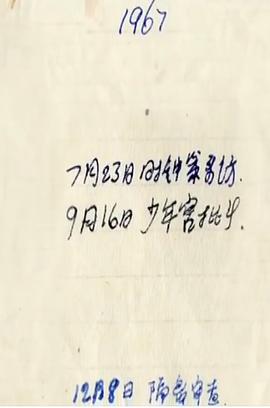 1967
7月23日 时钟案来访.
9月16日 少年宫批斗.
12月8日 隔离审查.